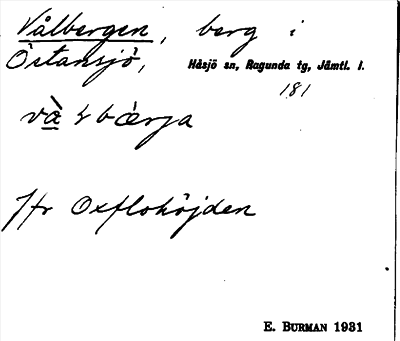 Vålbergen, berg i
Östansjö, Håsjö sn, Ragunda tg, Jämtl. l.
181
Jfr Oxflohöjden
E. BURMAN 1931